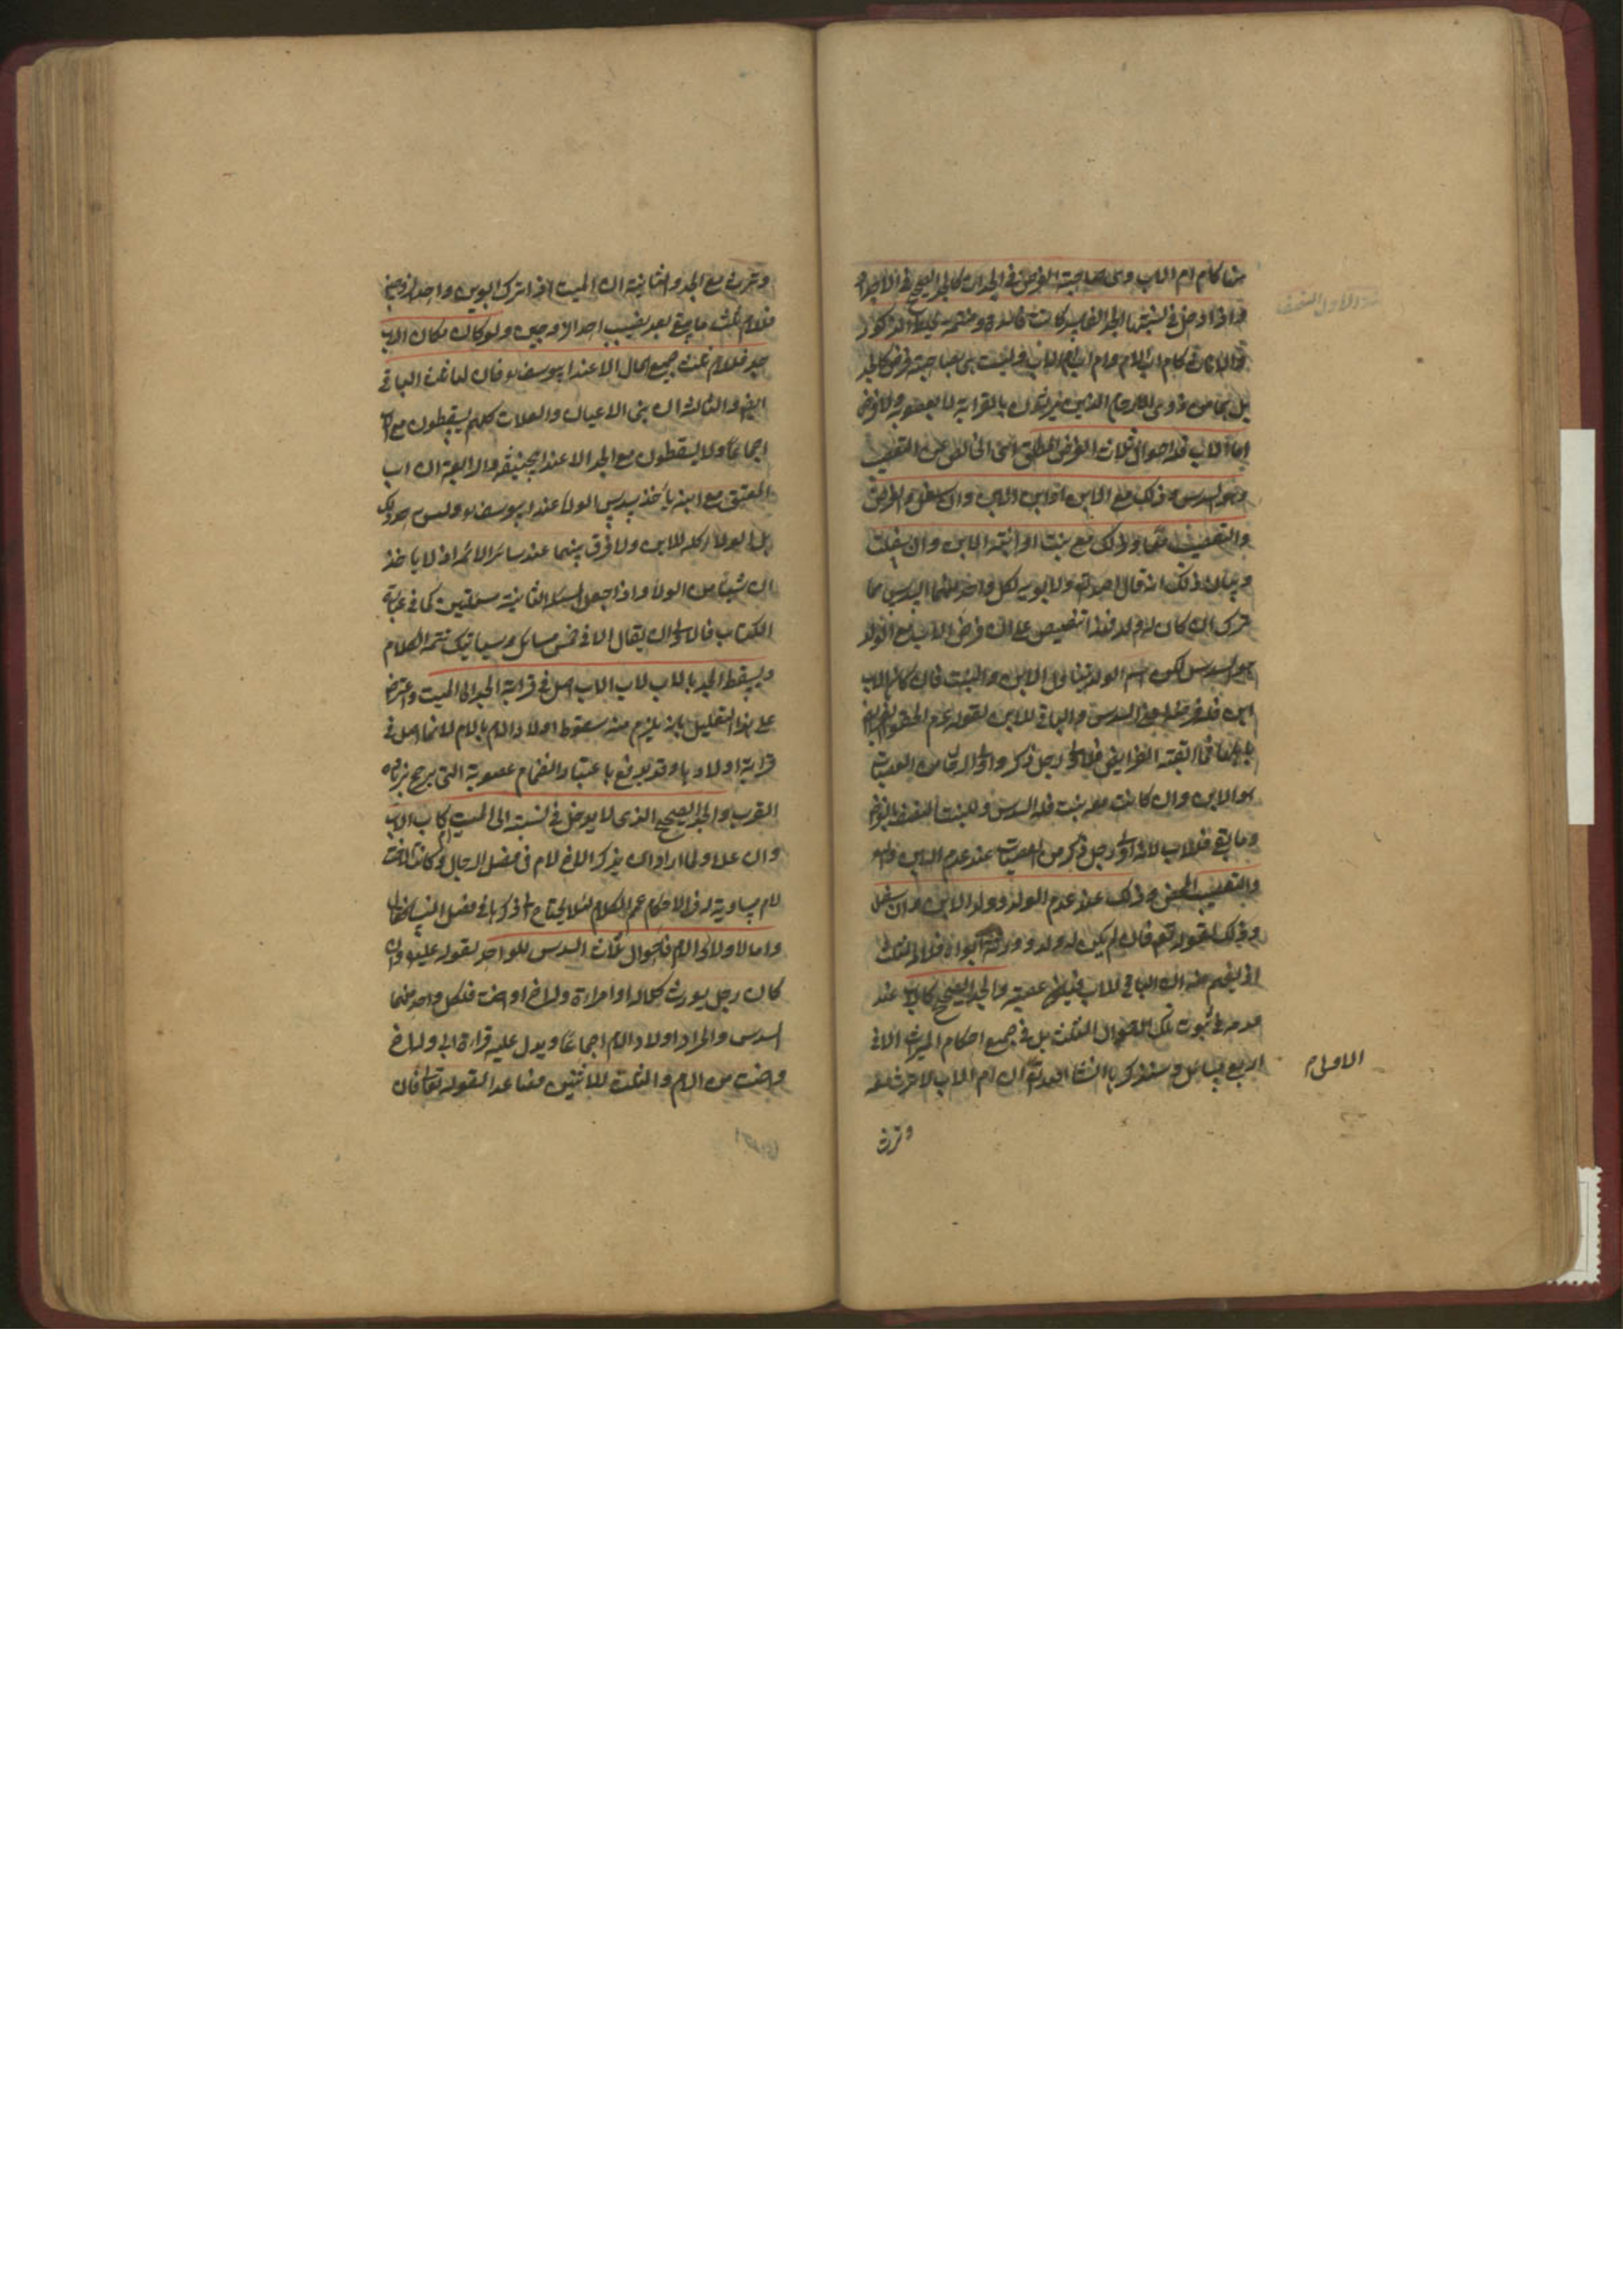 من كام ام الاب وهى صاحبة الفرض فى الجدات كالجد الصحيح فى الاجداد
واذا ادخل فى نسبتها الجد الفاسد كانت فاسدة
والاناث كام اب الام وام اب ام الاب وليست هى صاحبة فرض كالجد
بل هما من ذوى الارحام الذين يرثون بالقرابة لا بالعصوبة ولا فرض
اما الاب فله احوال ثلاث الفرض المطلق اى الخالص عن التعصيب
وهو السدس وذلك مع الابن او ابن الابن وان سفل والفرض
والتعصيب معًا وذلك مع بنت او ابنة الابن وان سفلت
وبيان ذلك انه قال الله تعالى ولابويه لكل واحد منهما السدس مما
ترك ان كان له ولد فهذا تنصيص على ان فرض الاب مع الولد
هو السدس لكن اسم الولد يتناول الابن والبنت فان كان مع الاب
ابن فله فرضه اعنى السدس والباقى للابن لقوله عم الحقوا الفرائض
باهلها فما ابقته الفرايض فلاولى رجل ذكر واولى الرجال من العصبات
هو الابن وان كانت معه بنت فله السدس وللبنت النصف بالفرض
وما بقى فللاب لانه اولى رجل ذكر من العصبات عند عدم الابن وابنه
والتعصيب المحض وذلك عند عدم الولد وولد الابن وان سفل
وذلك لقوله تع فان لم يكن له ولد وورثه ابواه فلامه الثلث
اذ يفهم منه ان الباقى للاب فيكون عصبة والجد الصحيح كالاب عند
عدمه فى ثبوت تلك الاحوال الثلث بل فى جميع احكام الميراث الا فى
اربع مسائل وسنذكرها انشا الله تع ان ام الاب لا ترث معه
الاولى
وترث
وترث مع الجد والثانية ان الميت اذا ترك ابوين واحد الزوجين
فللام ثلث ما يبقى بعد نصيب احد الزوجين ولو كان مكان الاب
جد فللام ثلث جميع المال الا عند ابيوسف ره فان لها ثلث الباقى
ايضا والثالثة ان بنى الاعيان والعلات كلهم يسقطون مع الاب
اجماعًا ولا يسقطون مع الجد الا عند ابيحنيفه والرابعة ان اب
المعتق مع ابنه ياخذ سدس الولاء عند ابيوسف ره وليس للجد ذلك
بل الولاء كله للابن ولا فرق بينهما عند سائر الائمة اذ لا ياخذ
ان شيئا من الولاء واذا جعل المسئلة الثانية مسئلتين كما فى عبارة
الكتاب فالاولى ان يقال الا فى خمس مسائل وسياتيك تتمة الكلام
ويسقط الجد بالاب لان الاب اصل فى قرابة الجد الى الميت واعترض
على هذا التعليل بانه يلزم منه سقوط اولاد الام بالام لانها اصل فى
قرابة اولادها وقد يدفع باعتبار انضمام عصوبة التى يرجح بزيادة
القرب والجد الصحيح الذى لا يدخل فى نسبته الى الميت ام كاب الاب
وان علا ولما اراد ان يذكر الاخ لام فى فصل الرجال وكانت الاخت
لام مساوية له فى الاحكام عم الكلام لئلا يحتاج الى ذكرها فى فصل النساء فقال
واما لاولاد الام فاحوال ثلث السدس للواحد لقوله تع وان
كان رجل يورث كلالة او امراة وله اخ او اخت فلكل واحد منهما
السدس والمراد اولاد الام اجماعًا ويدل عليه قراءة ابى وله اخ
واخت من الام والثلث للاثنين فصاعدا لقوله تعالى فان